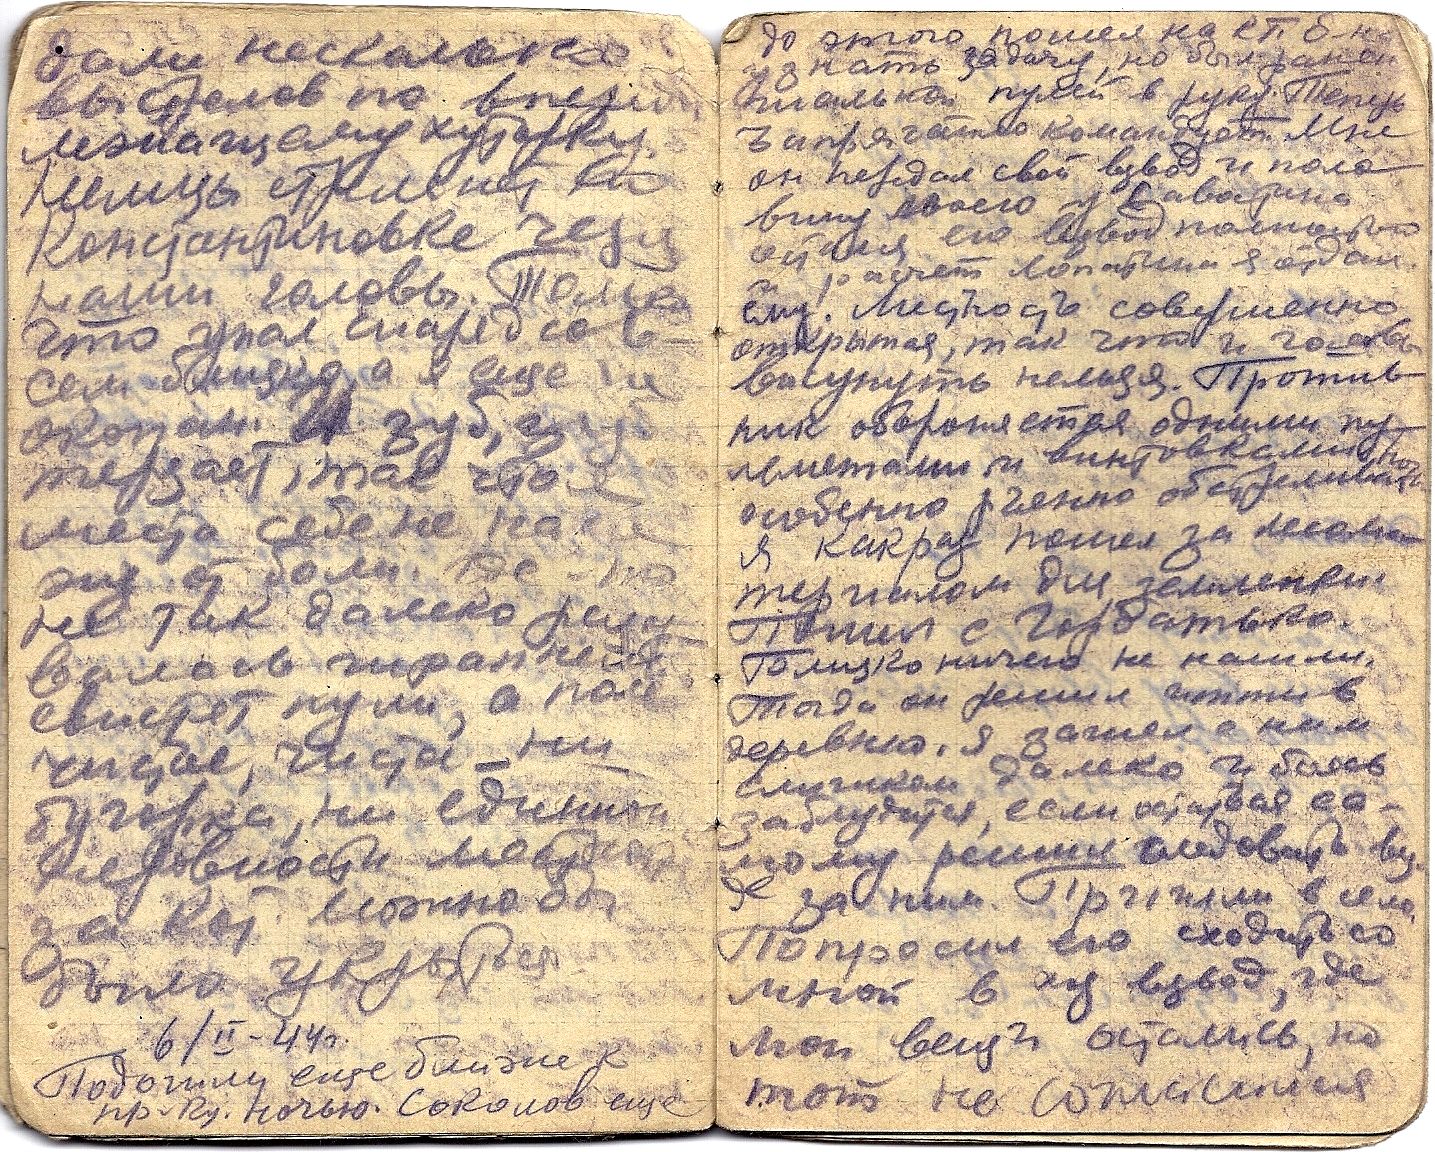 дали несколько
выстрелов по впереди
лежащему хуторку.
Немцы стреляют по
Константиновке через
наши головы. Только
что упал снаряд сов-
сем близко, а я еще не
окопан. А зуб, зуб
терзает, так что
места себе не нахо
жу от боли. Где-то
не так далеко
свистят пули, а поле
чистое, чисто_ ни
бугорка, ни единой
неровности местности
за кот. можно бы
было укрыться
6/II-44г.
Подошли еще ближе к
пр-ку. Ночью. Соколов еще
до этого пошел на КП б-на
узнать задачу, но был ранен
шальной пулей в руку. Теперь
Запрягайло командует. Мне
он передал свой взвод и поло
вину своего у
его взвод полностью
и расчет Лопатина я отдал
ему. Местность совершенно
открытая, так что и головы
высунуть нельзя. Против-
ник обороняется одними пу-
леметами и винтовками, но
особенно обстреливает
Я как раз пошел за лесома-
териалом для землянки
Пошли с Горбатько.
Близко ничего не нашли.
Тогда он решил итти в
деревню. Я зашел с ним
слишком далеко и боясь
заблудится, если оставая са-
мому решил следовать вез
де за ним. Пришли в село.
Попросил его сходить со
мной в хоз взвод, где
мои вещи остались, но
тот не согласился